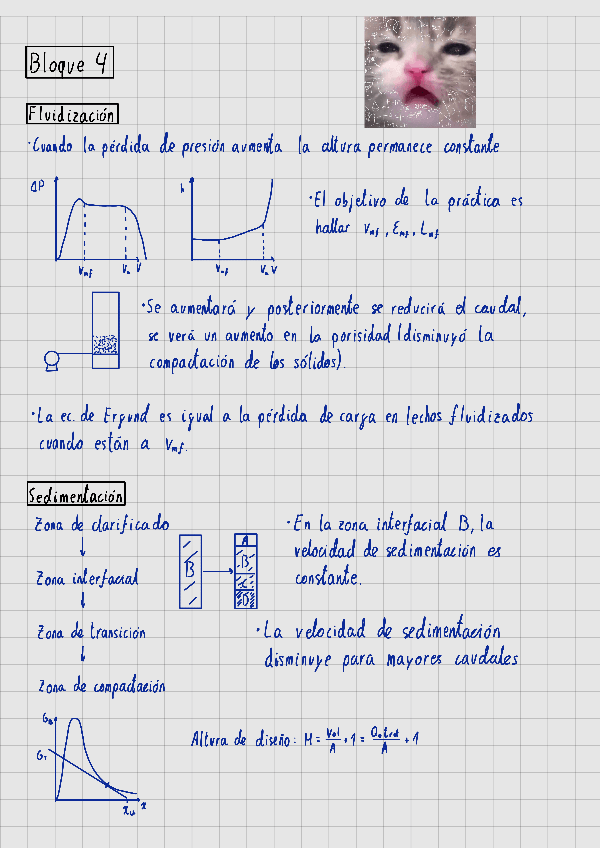 Bloque 4
Fluidización
·Cuando la pérdida de presión aumenta la altura permanece constante
ΔP
h
Vmf
Va
V
Vmf
Va
V
·El objetivo de la práctica es
hallar Vmf, Emf, Lmf
·Se aumentará y posteriormente se reducirá el caudal,
se verá un aumento en la porisidad (disminuyó la
compactación de los sólidos).
·La ec. de Ergund es igual a la pérdida de carga en lechos fluidizados
cuando están a Vmf.
Sedimentación
Zona de clarificado
↓
Zona interfacial
↓
Zona de transición
↓
Zona de compactación
B
A
B
C
D
·En la zona interfacial B, la
velocidad de sedimentación es
constante.
·La velocidad de sedimentación
disminuye para mayores caudales
GT
Xu
X
Altura de diseño: H = Vol/A + 1 = Qo·trd/A + 1